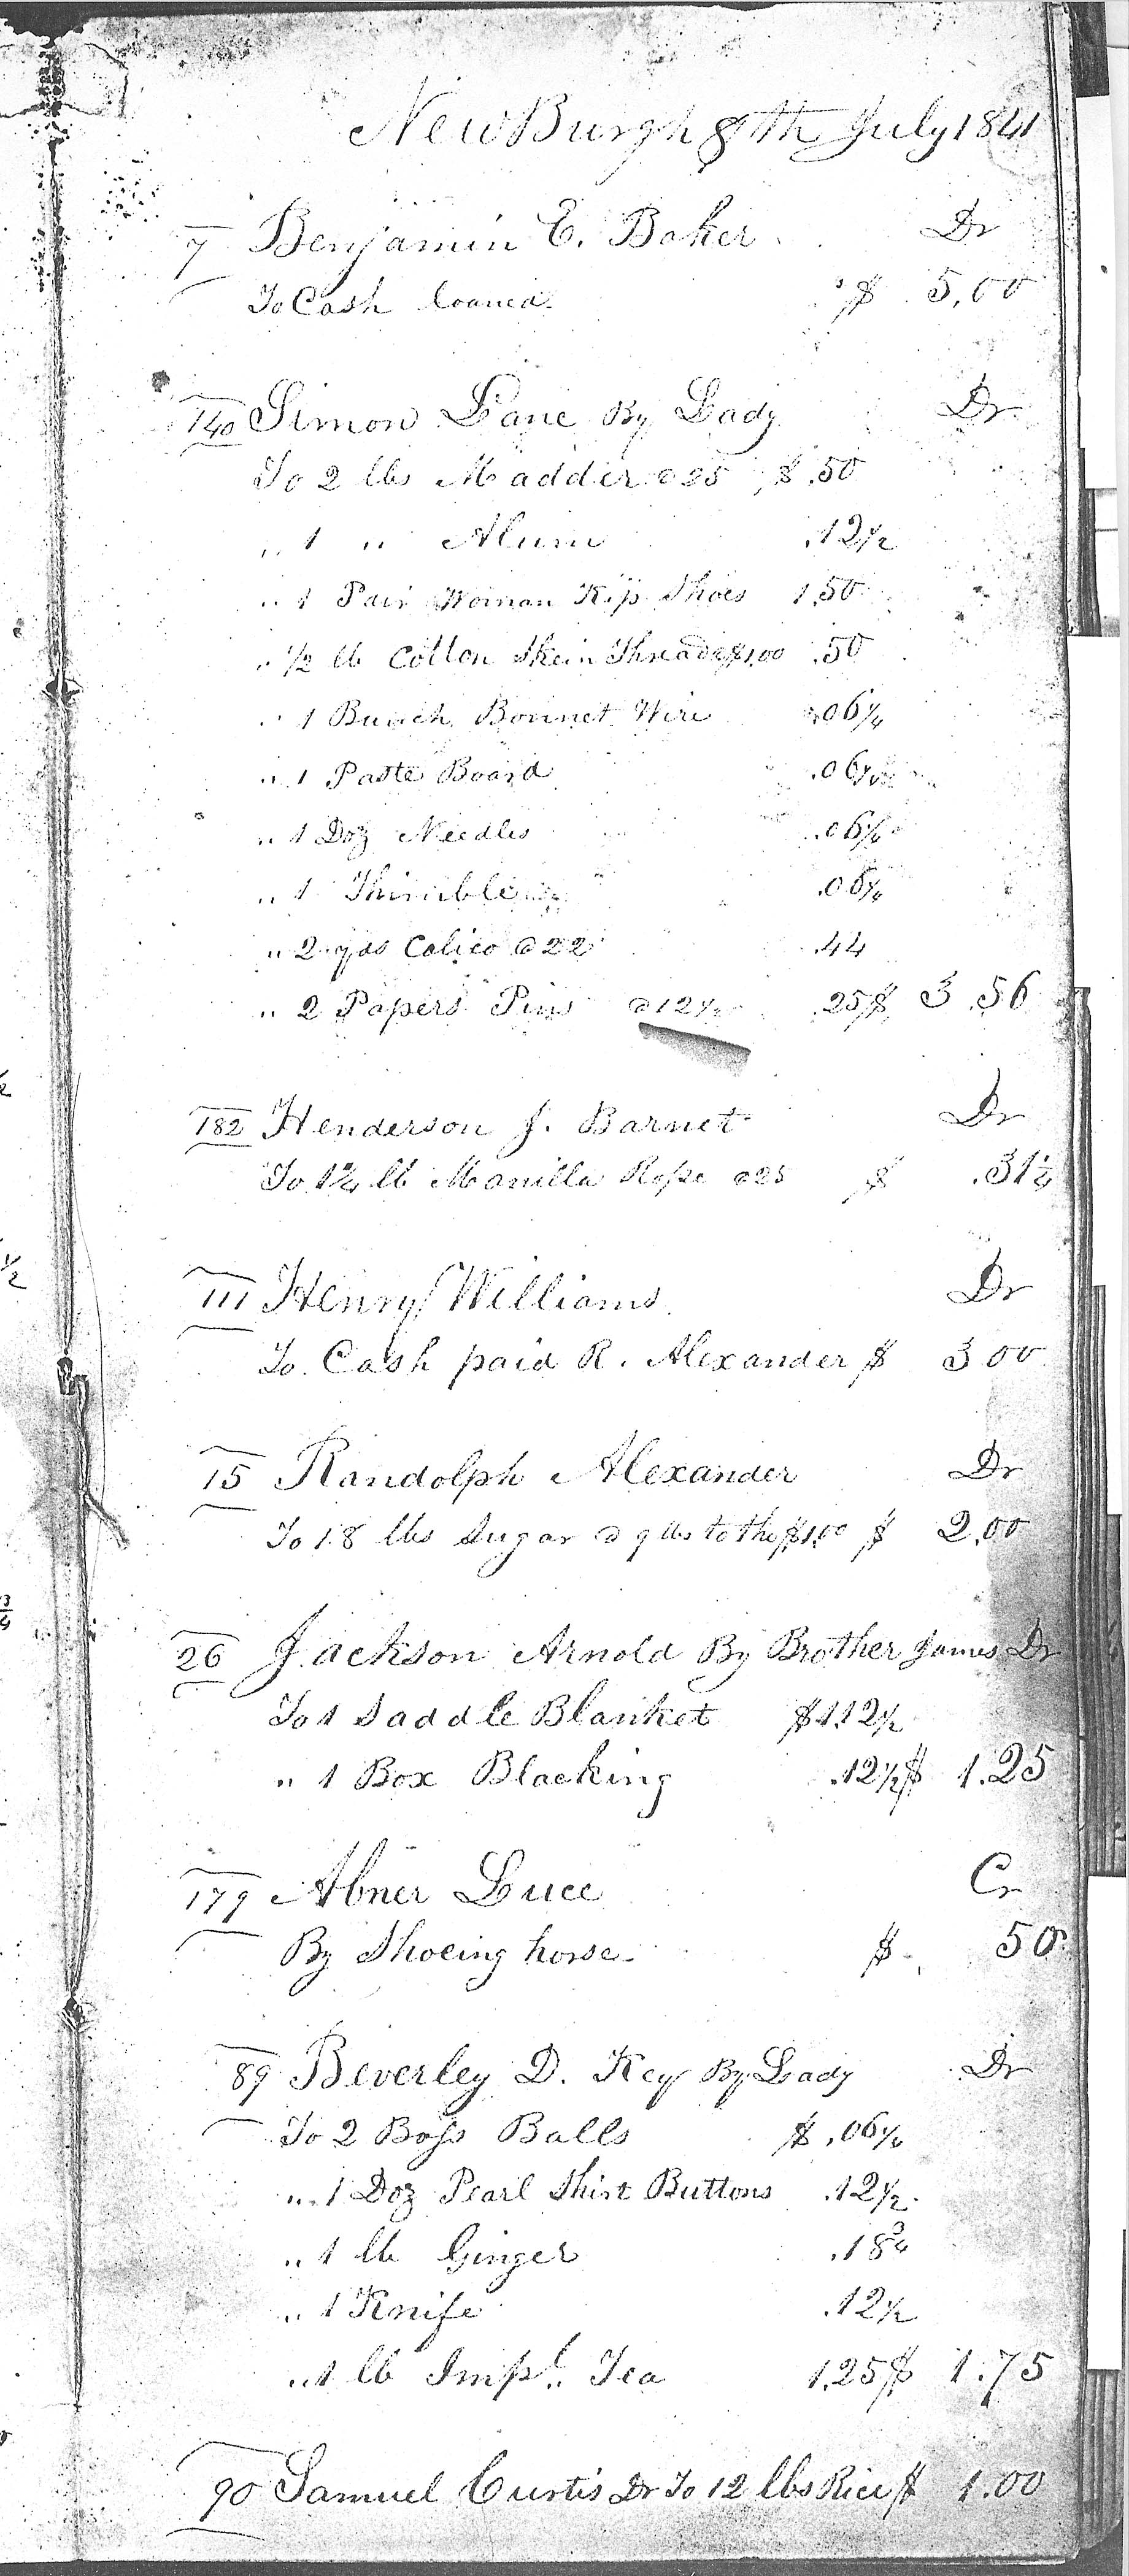 New Burgh 8th July 1841
7 Benjamin E. Baker Dr
To Cash loaned $ 5,00
140 Simon Lane By Lady Dr
To 2 lbs Madder @ 25 $ .50
" 1 " Alum .12 1/2
" 1 Pair Woman Kip Shoes 1.50
" 1/2 lb Cotton Skein Thread @ $1,00 .50
" 1 Bunch Bonnet Wire .06 1/4
" 1 Paste Board .06 1/4
" 1 Doz Needles .06 1/4
" 1 Thimble .06 1/4
" 2 yds Calico @ 22 .44
" 2 Papers Pins @ 12 1/2 .25 $ 3.56
182 Henderson J. Barnet Dr
To 1 1/4 lb Manilla Rope @ 25 $ .31 1/4
111 Henry Williams Dr
To Cash paid R. Alexander $ 3 00
15 Randolph Alexander Dr
To 18 lbs Sugar @ 9 lbs to the $1,00 $ 2,00
26 Jackson Arnold By Brother James Dr
To 1 Saddle Blanket $ 1.12 1/2
" 1 Box Blacking .12 1/2 $ 1.25
179 Abner Luce Cr
By Shoeing horse $ 50
89 Beverley D. Key By Lady Dr
To 2 Boss Balls $ .06 1/4
" 1 Doz Pearl Shirt Buttons .12 1/2
" 1 lb Ginger .18 3/4
" 1 Knife .12 1/2
" 1 lb Impl. Tea 1.25 $ 1.75
90 Samuel Curtis Dr To 12 lbs Rice $ 1.00
1/2
1/2
3/4